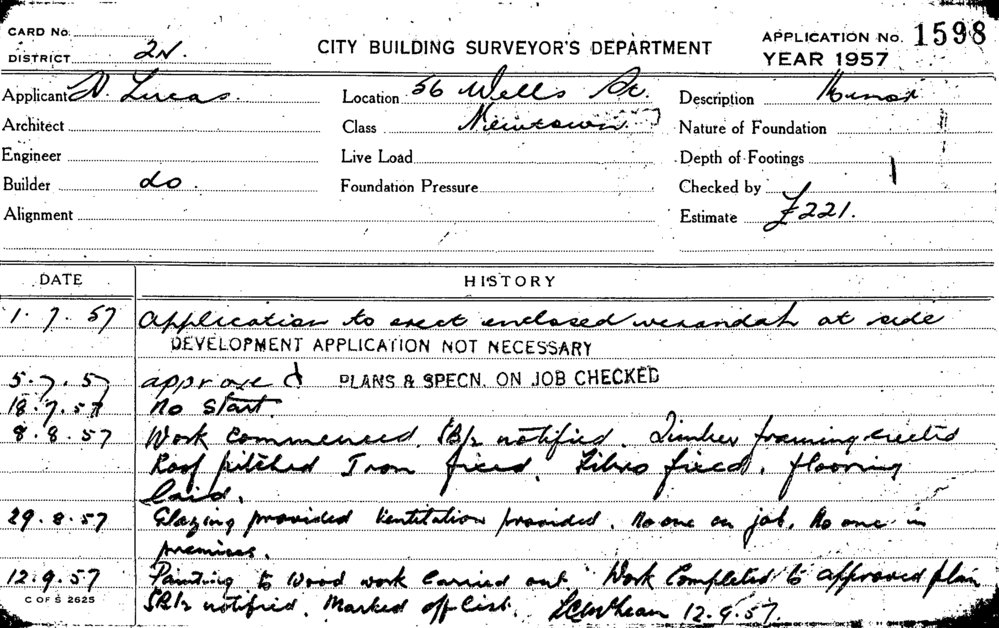 CARD No.
DISTRICT 2N.
CITY BUILDING SURVEYOR'S DEPARTMENT
APPLICATION No. 1598
YEAR 1957
Applicant N. Lucas. Location 56 Wells St. Description Minor
Architect Class Newtown. Nature of Foundation
Engineer Live Load Depth of Footings
Builder do. Foundation Pressure Checked by
Alignment Estimate £221.
DATE HISTORY
1.7.57 Application to erect enclosed verandah at side
DEVELOPMENT APPLICATION NOT NECESSARY
5.7.57 approved PLANS & SPECN. ON JOB CHECKED
18.7.57 No start.
8.8.57 Work commenced. notified. Timber framing erected
Roof pitched Iron fixed. Fibro fixed. flooring
laid.
29.8.57 Glazing provided Ventilation provided. No one on job. No one in
premises.
12.9.57 Painting to wood work carried out Work Completed to approved plan
notified. Marked off list. 12.9.57.
C OF S 2625